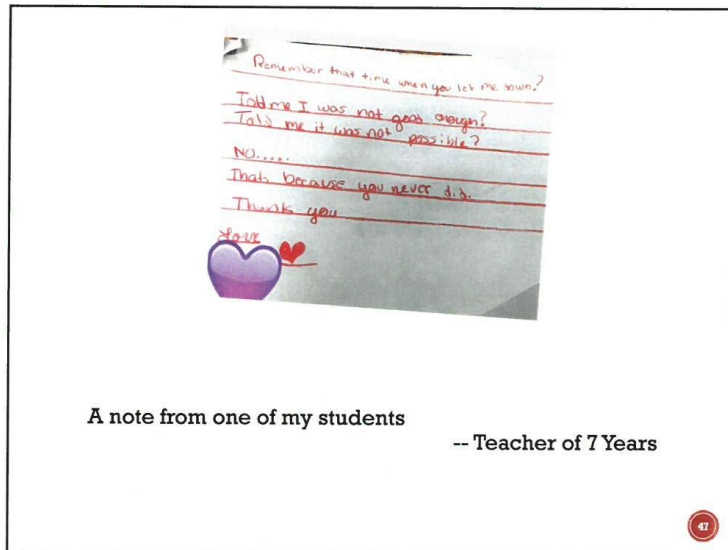 Remember that time when you let me down?
Told me I was not good enough?
Told me it was not possible?
NO.....
Thats because you never did.
Thank you
Love
A note from one of my students
-- Teacher of 7 Years
47